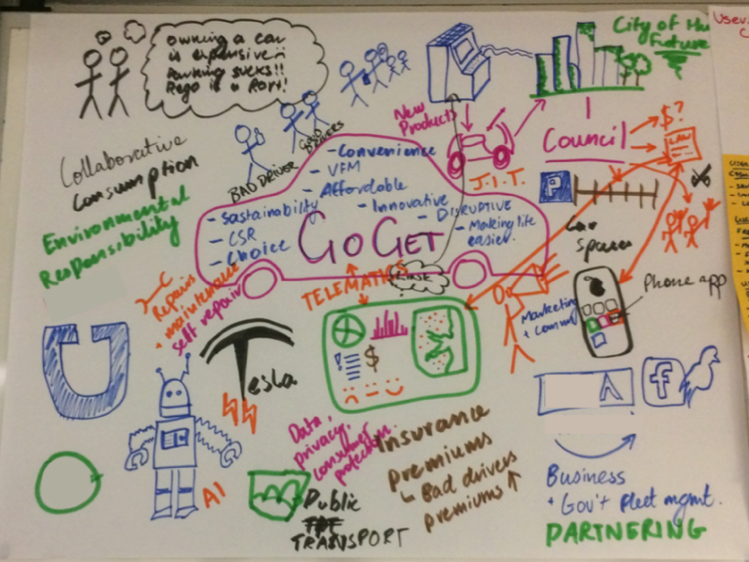 OWNING A CAR
is expensive
Parking sucks!!
Rego is a Rort!
City of the
Future
Collaborative
Consumption
Environmental
Responsibility
BAD DRIVER
GOOD DRIVERS
- Convenience
- VFM
- Affordable
- Innovative
- DISRUPTIVE
- Making life
easier.
- Sustainability
- CSR
- Choice
GOGET
New
Products
J.I.T.
Council
$?
LAW
P
Car
Spaces
Repairs
+ maintenance
self repair
TELEMATICS
Marketing
+ Comms
Phone app
Tesla
$
AI
Data,
privacy,
consumer
protection.
Insurance
premiums
↳ Bad drivers
premiums ↑
Public
TRANSPORT
f
Business
+ Gov't fleet mgmt.
PARTNERING